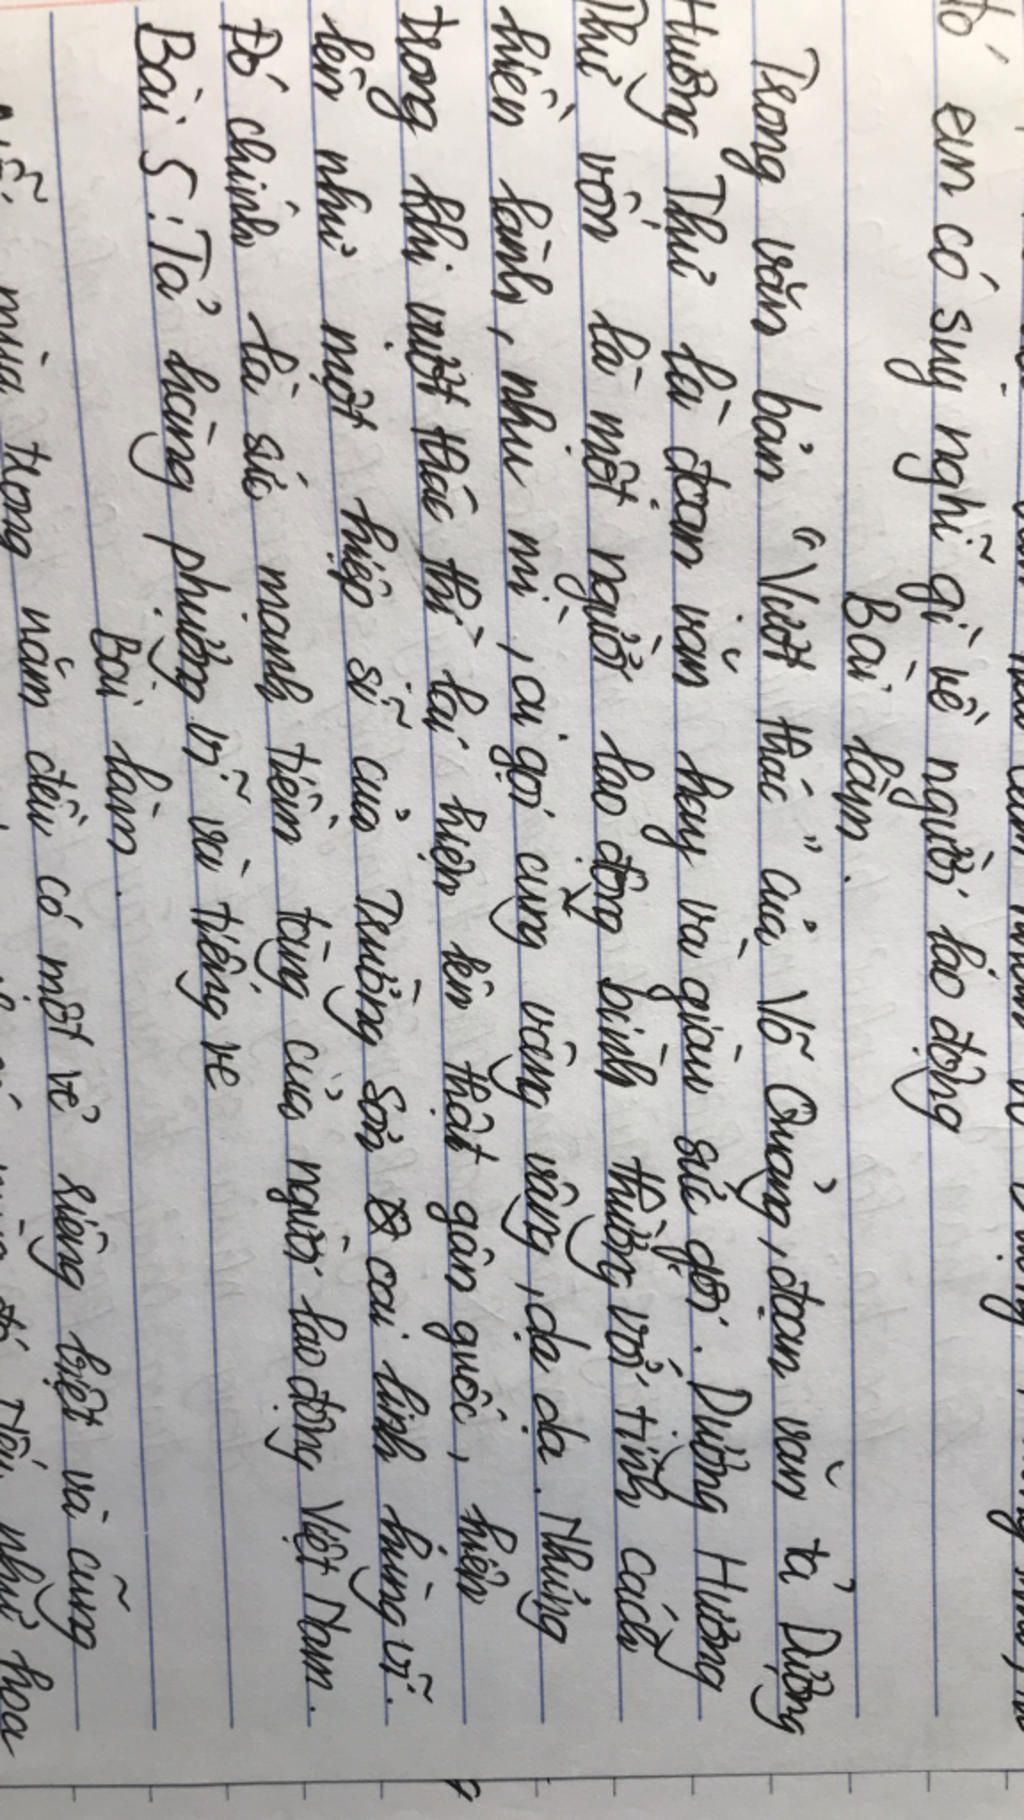 đó em có suy nghĩ gì về người lao động
Bài làm.
Trong văn bản "Vượt thác" của Võ Quảng, đoạn văn tả Dượng
Hương Thư là đoạn văn hay và giàu sức gợi. Dượng Hương
Thư vốn là một người lao động bình thường với tính cách
hiền lành, nhu mì, ai gọi cũng vâng vâng, dạ dạ. Nhưng
trong khi vượt thác thì lại hiện lên thật gân guốc, hiên
lên như một hiệp sĩ của Trường Sơn oai linh hùng vĩ.
Đó chính là sức mạnh tiềm tàng của người lao động Việt Nam.
Bài 5: Tả hàng phượng vĩ và tiếng ve
Bài làm.
Mỗi mùa trong năm đều có một vẻ riêng biệt và cũng